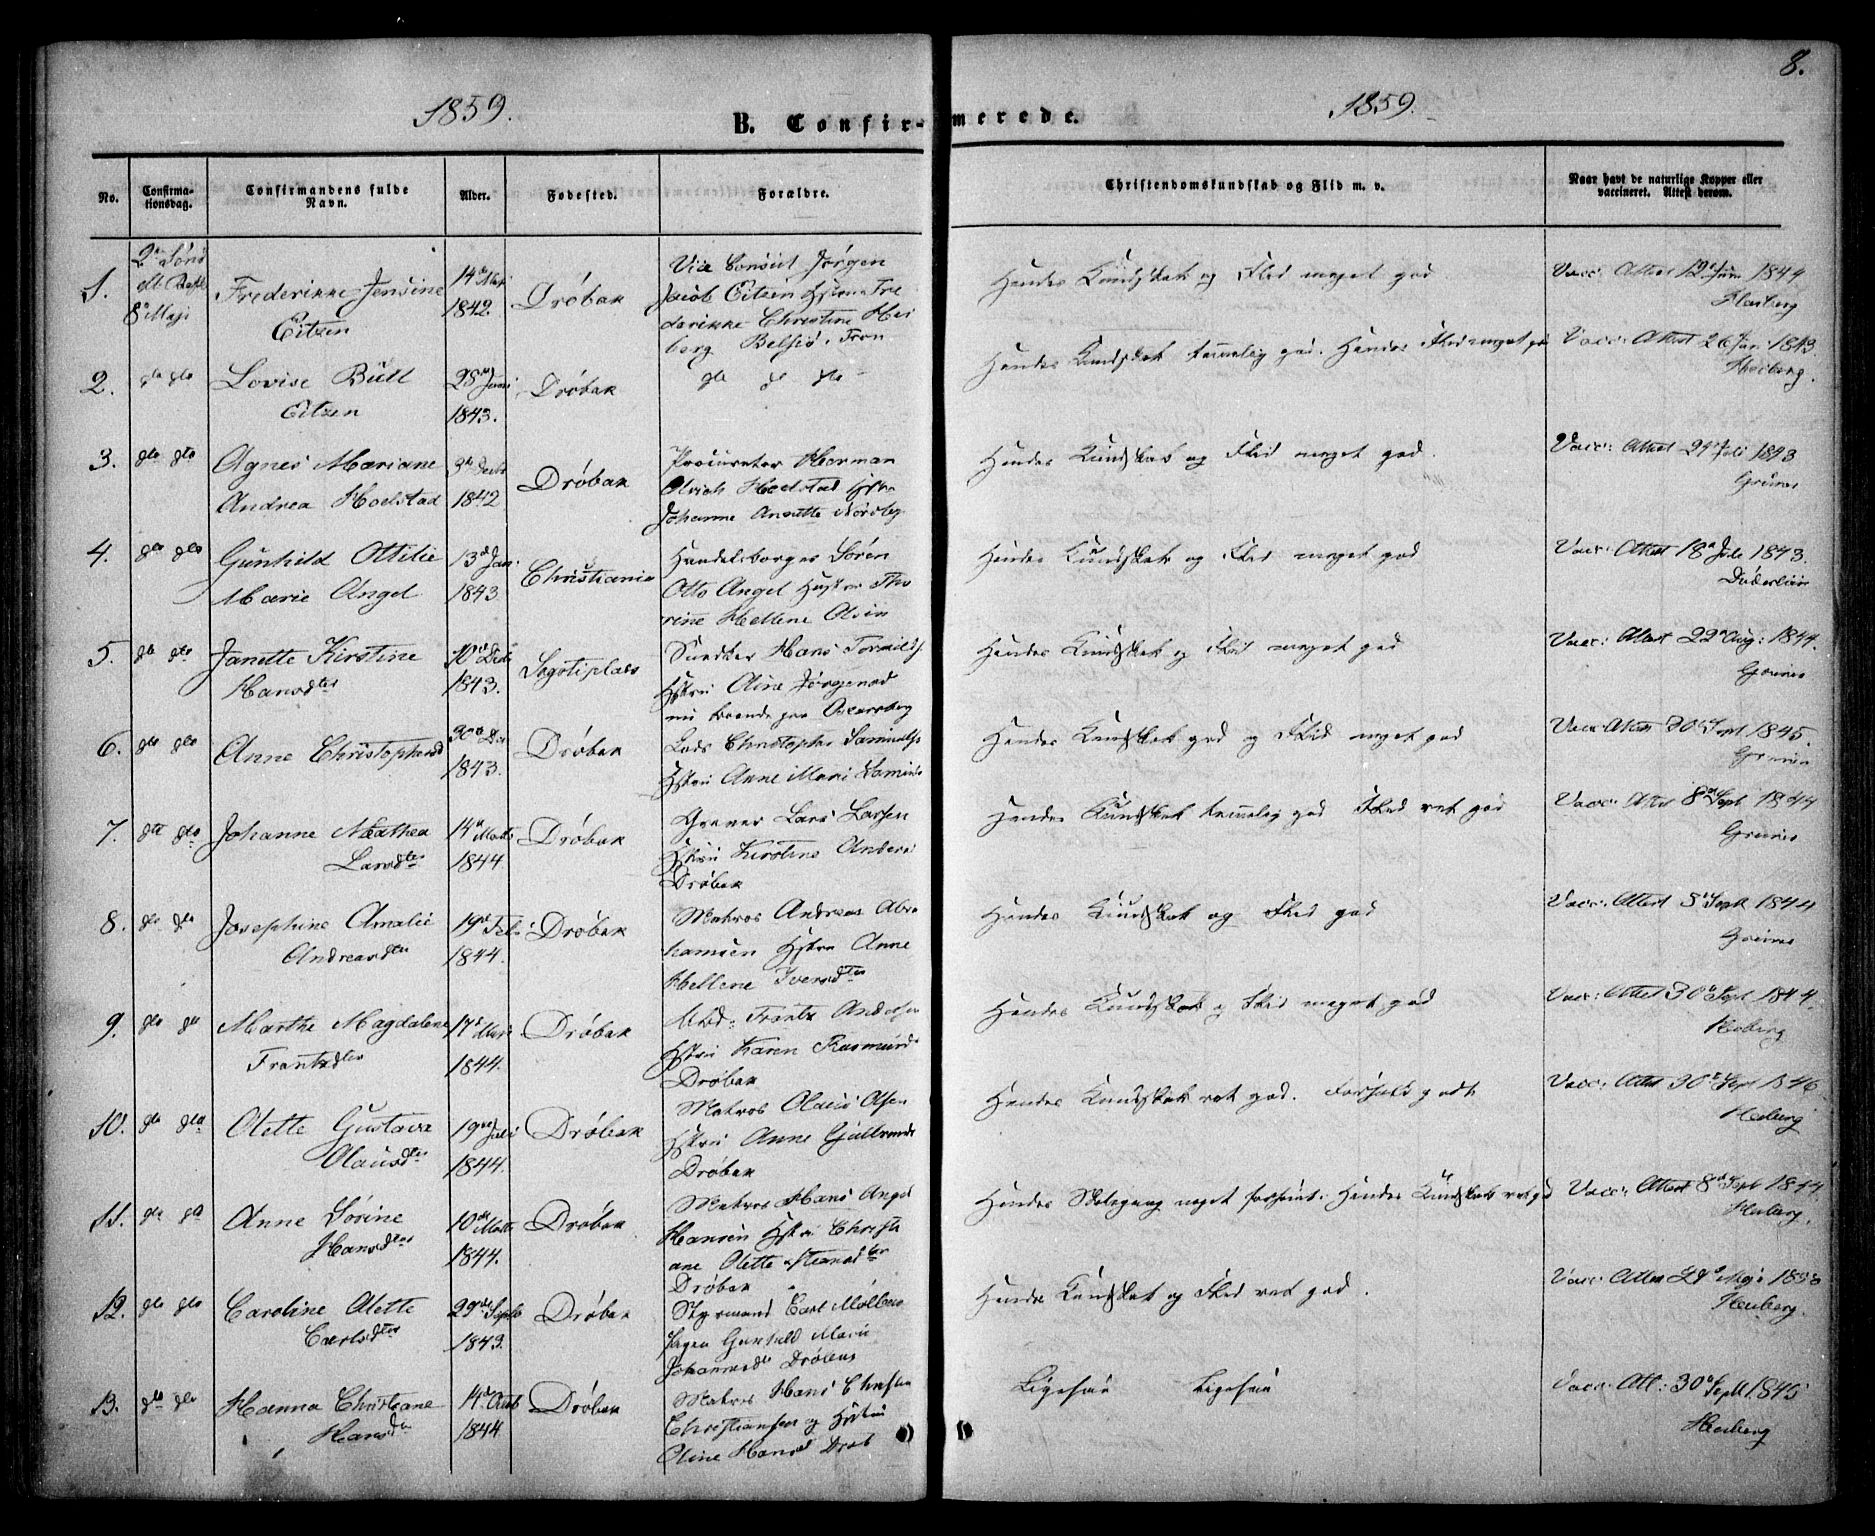 8.
1859.
1859.
B. Confir-merede.
No.
Confirma-
tionsdag.
Confirmandens fulde
Navn.
Alder.
Fødested.
Forældre.
Christendomskundskab og Flid m. v.
Naar havt de naturlige Kopper eller
vaccineret. Attest derom.
1.
8de Maji
Frederikke Jensine
Eitzen
14de
1842.
Drøbak
Vice Consul Jørgen
Jacob Eitzen Hustru Fre
derikke Christine Hei
berg
Hendes Kundskab og Flid meget god
Vacc: Attest 12te Juni 1844
2.
dto dto
Lovise Büll
Eitzen
28de
1843.
Drøbak
dto dto dto
Hendes Kundskab temmelig god. Hendes Flid meget god
Vacc: Attest 26 1843.
Heiberg.
3.
dto dto
Agnes Mariane
Andrea Hoelstad
1842
Drøbak
Procurator Herman
Ulrich Hoelstad Hstru
Johanne Annette Nordby
Hendes Kundskab og Flid meget god.
Vacc: Attest Juli 1843
4.
dto dto
Gunhild Ottilie
Marie Angel
13de Jan:
1843.
Christiania
Handelsborger Søren
Otto Angel Hustru Tho
rine Hellene Olsen
Hendes Kundskab og Flid meget god
Vacc: Attest 18de Juli 1843.
5.
dto dto
Janette Kirstine
Hansdter
10de
1843.
Snedker Hans
Hstru Aline Jørgensd
nu boende paa
Hendes Kundskab og Flid meget god
Vacc: Attest 22de Aug: 1844.
6.
dto dto
Anne Christophersd
30te
1843.
Drøbak
Lods Christopher Samuels
Hstru Anne Marie Samuels
Hendes Kundskab god og Flid meget god
Vacc: Attest 30te Sept 1845.
7.
dto dto
Johanne Mathea
Larsdter
14de Marts
1844.
Drøbak
Lars Larsen
Hstru Kirstine Anders
Drøbak
Hendes Kundskab temmelig god Flid ret god
Vacc: Attest 8de Sept 1844
8.
dto dto
Josephine Amalie
Andreasdter
19de Feb:
1844.
Drøbak
Matros Andreas Abra
hamsen Hstru Anne
Hellene Iversdter
Hendes Kundskab og Flid god
Vacc: Attest Sept 1844
9.
dto dto
Marthe Magdalene
Frantzdter
17de
1844.
Drøbak
Arbd: Frantz Andersen
Hstru Karen Rasmusd
Drøbak
Hendes Kundskab og Flid meget god
Vacc: Attest 30te Sept 1844.
Heiberg
10.
dto dto
Olette Gustava
Olausdter
19de Juli
1844.
Drøbak
Matros Olaus Olsen
Hstru Anne Gulbrands
Drøbak
Hendes Kundskab ret god. Forhold godt
Vacc: Attest 30te Sept 1846
Heiberg
11.
dto dto
Anne Sørine
Hansdter
10de Marts
1844.
Drøbak
Matros Hans Angel
Hansen Hstru Christi
ane Olette Hansdter
Drøbak
Hendes Skolegang meget forsømt. Hendes Kundskab ret god
Vacc: Attest 8de Sept 1844
Heiberg.
12.
dto dto
Caroline Alette
Carlsdter
29de Septb
1843.
Drøbak
Styrmand Carl
Pigen Gunhild Marie
Johannesdt Drøbak
Hendes Kundskab og Flid ret god.
Vacc: Attest Maji
Heiberg.
13.
dto dto
Hanna Christiane
Hansdtr
14de
1844
Drøbak
Matros Hans Christian
Christiansen og Hustru
Oline Hansd Drøb
Ligesaa Ligesaa
Vacc: Att: 30te Sept 1845
Heiberg